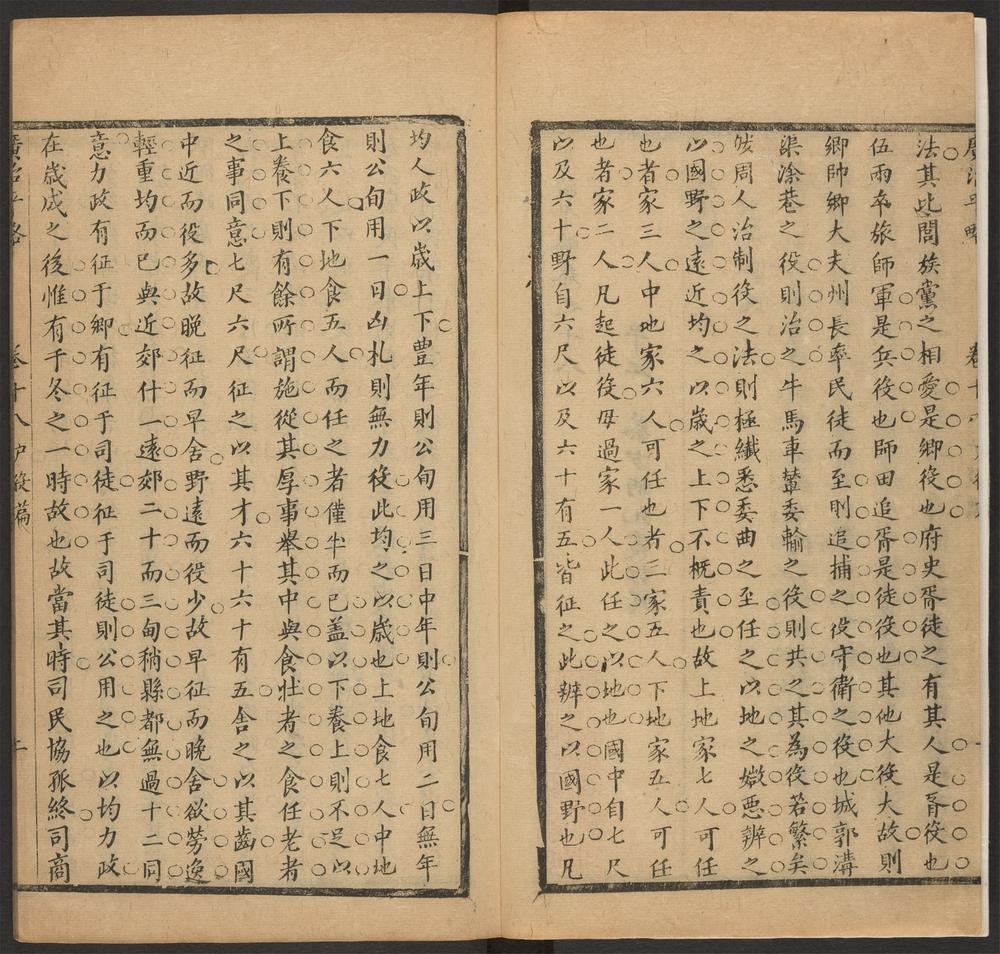 廣治平略 卷十八
法其比閭族黨之相愛是鄉役也府史胥徒之有其人是胥役也
伍兩卒旅師軍是兵役也師田追胥是徒役也其他大役大故則
鄉帥鄉大夫州長率民徒而至則追捕之役守衛之役也城郭溝
渠涂巷之役則治之牛馬車輦委輸之役則共之其為役若繁矣
然周人治制役之法則極纖悉委曲之至任之以地之媺惡辨之
以國野之遠近均之以歲之上下不概責也故上地家七人可任
也者家三人中地家六人可任也者二家五人下地家五人可任
也者家二人凡起徒役毋過家一人此任之以地也國中自七尺
以及六十野自六尺以及六十有五皆征之此辨之以國野也凡
均人政以歲上下豊年則公旬用三日中年則公旬用二日無年
則公旬用一日凶札則無力役此均之以歲也上地食七人中地
食六人下地食五人而任之者僅半而已盖以下養上則不足以
上養下則有餘所謂施從其厚事舉其中與食壯者之食任老者
之事同意七尺六尺征之以其才六十六十有五舍之以其齒國
中近而役多故晚征而早舍野遠而役少故早征而晚舍欲勞逸
輕重均而已與近郊什一遠郊二十而三甸稍縣都無過十二同
意力政有征于鄉有征于司徒征于司徒則公用之也以均力政
在歲成之後惟有于冬之一時故也故當其時司民協孤終司商
廣治平略 卷十八戶役篇 二